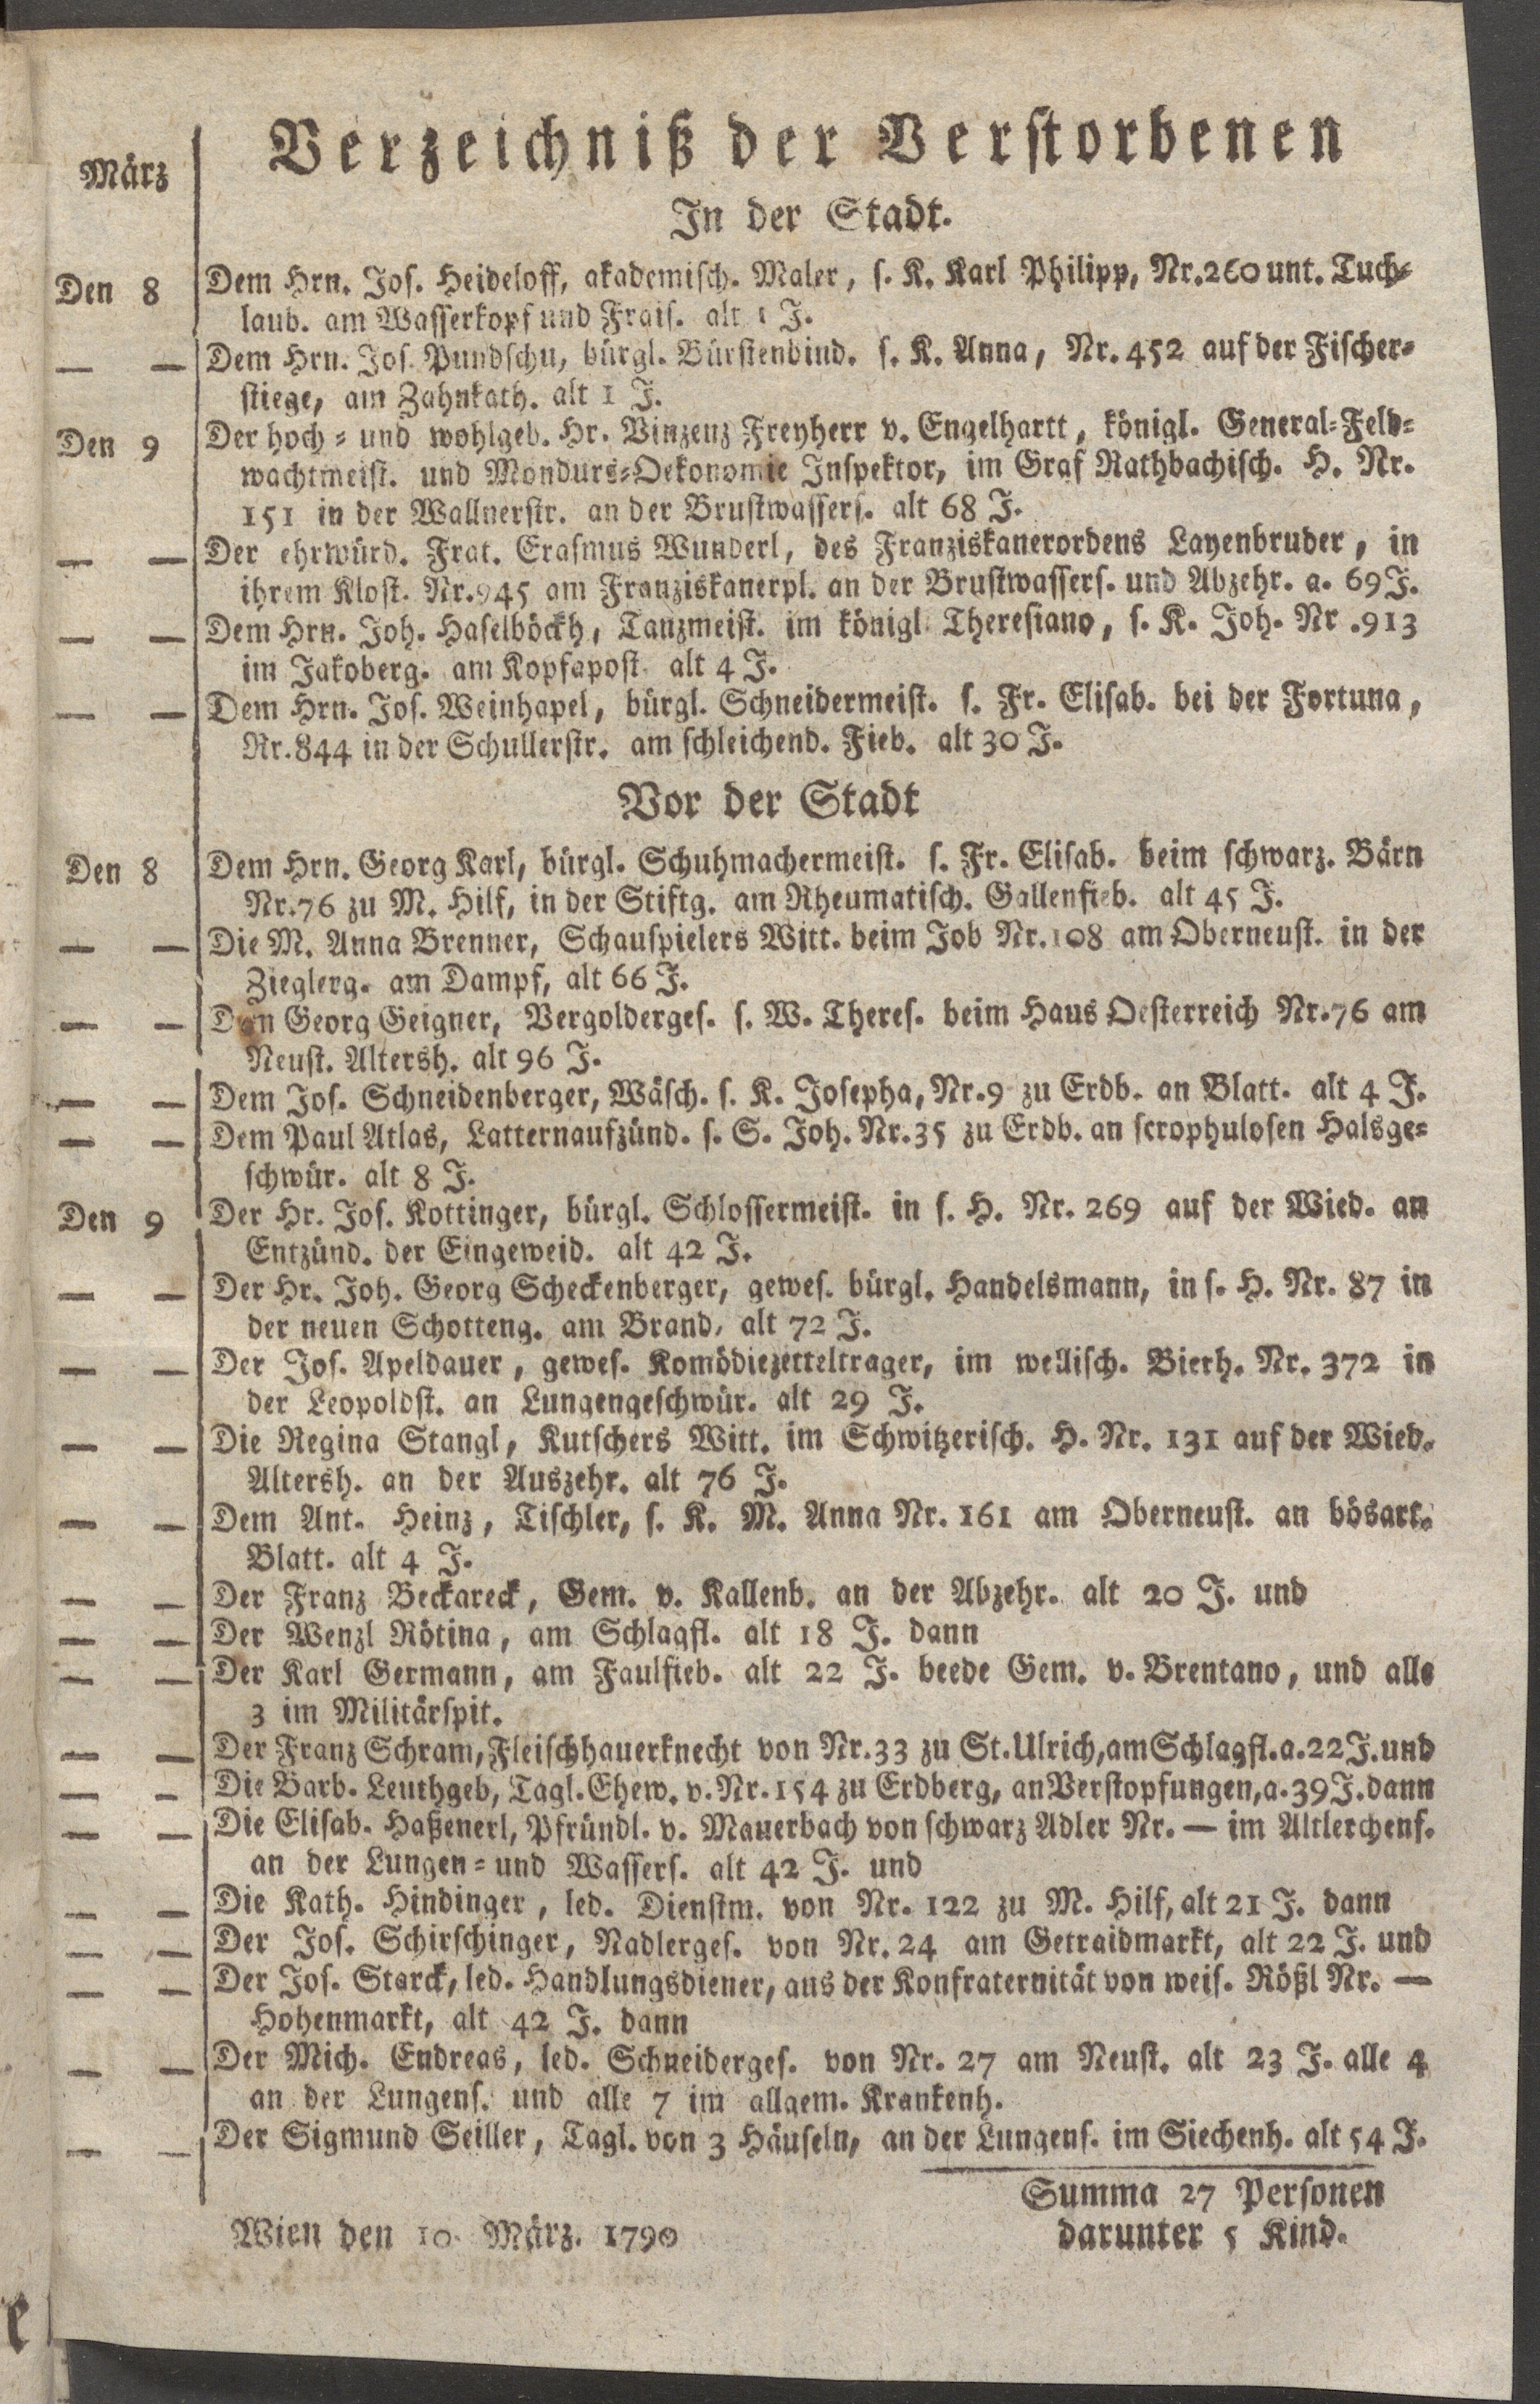 Verzeichniß der Verstorbenen
März
In der Stadt.
Den 8 Dem Hrn. Jos. Heideloff, akademisch. Maler, s. K. Karl Philipp, Nr. 260 unt. Tuch-
laub. am Wasserkopf und Frais. alt 1 J.
— — Dem Hrn. Jos. Pundschu, bürgl. Bürstenbind. s. K. Anna, Nr. 452 auf der Fischer-
stiege, am Zahnkath. alt 1 J.
Den 9 Der hoch- und wohlgeb. Hr. Vinzenz Freyherr v. Engelhartt, königl. General-Feld-
wachtmeist. und Mondurs-Oekonomie Inspektor, im Graf Rathbachisch. H. Nr.
151 in der Wallnerstr. an der Brustwassers. alt 68 J.
— — Der ehrwürd. Frat. Erasmus Wunderl, des Franziskanerordens Layenbruder, in
ihrem Klost. Nr. 945 am Franziskanerpl. an der Brustwassers. und Abzehr. a. 69 J.
— — Dem Hrn. Joh. Haselböckh, Tanzmeist. im königl. Theresiano, s. K. Joh. Nr. 913
im Jakoberg. am Kopfapost. alt 4 J.
— — Dem Hrn. Jos. Weinhapel, bürgl. Schneidermeist. s. Fr. Elisab. bei der Fortuna,
Nr. 844 in der Schullerstr. am schleichend. Fieb. alt 30 J.
Vor der Stadt
Den 8 Dem Hrn. Georg Karl, bürgl. Schuhmachermeist. s. Fr. Elisab. beim schwarz. Bärn
Nr. 76 zu M. Hilf, in der Stiftg. am Rheumatisch. Gallenfieb. alt 45 J.
— — Die M. Anna Brenner, Schauspielers Witt. beim Job Nr. 108 am Oberneust. in der
Zieglerg. am Dampf, alt 66 J.
— — Dem Georg Geigner, Vergolderges. s. W. Theres. beim Haus Oesterreich Nr. 76 am
Neust. Altersh. alt 96 J.
— — Dem Jos. Schneidenberger, Wäsch. s. K. Josepha, Nr. 9 zu Erdb. an Blatt. alt 4 J.
— — Dem Paul Atlas, Latternaufzünd. s. S. Joh. Nr. 35 zu Erdb. an scrophulosen Halsge-
schwür. alt 8 J.
Den 9 Der Hr. Jos. Kottinger, bürgl. Schlossermeist. in s. H. Nr. 269 auf der Wied. an
Entzünd. der Eingeweid. alt 42 J.
— — Der Hr. Joh. Georg Scheckenberger, gewes. bürgl. Handelsmann, in s. H. Nr. 87 in
der neuen Schotteng. am Brand, alt 72 J.
— — Der Jos. Apeldauer, gewes. Komödiezetteltrager, im wellisch. Bierh. Nr. 372 in
der Leopoldst. an Lungengeschwür. alt 29 J.
— — Die Regina Stangl, Kutschers Witt. im Schwitzerisch. H. Nr. 131 auf der Wied.
Altersh. an der Auszehr. alt 76 J.
— — Dem Ant. Heinz, Tischler, s. K. M. Anna Nr. 161 am Oberneust. an bösart.
Blatt. alt 4 J.
— — Der Franz Beckareck, Gem. v. Kallenb. an der Abzehr. alt 20 J. und
— — Der Wenzl Rötina, am Schlagfl. alt 18 J. dann
— — Der Karl Germann, am Faulfieb. alt 22 J. beede Gem. v. Brentano, und alle
3 im Militärspit.
— — Der Franz Schram, Fleischhauerknecht von Nr. 33 zu St. Ulrich, am Schlagfl. a. 22 J. und
— — Die Barb. Leuthgeb, Tagl. Ehew. v. Nr. 154 zu Erdberg, an Verstopfungen, a. 39 J. dann
— — Die Elisab. Haßenerl, Pfründl. v. Mauerbach von schwarz Adler Nr. — im Altlerchenf.
an der Lungen- und Wassers. alt 42 J. und
— — Die Kath. Hindinger, led. Dienstm. von Nr. 122 zu M. Hilf, alt 21 J. dann
— — Der Jos. Schirschinger, Nadlerges. von Nr. 24 am Getraidmarkt, alt 22 J. und
— — Der Jos. Starck, led. Handlungsdiener, aus der Konfraternität von weis. Rößl Nr. —
Hohenmarkt, alt 42 J. dann
— — Der Mich. Endreas, led. Schneiderges. von Nr. 27 am Neust. alt 23 J. alle 4
an der Lungens. und alle 7 im allgem. Krankenh.
— — Der Sigmund Seiller, Tagl. von 3 Häuseln, an der Lungens. im Siechenh. alt 54 J.
Summa 27 Personen
Wien den 10. März. 1790 darunter 5 Kind.